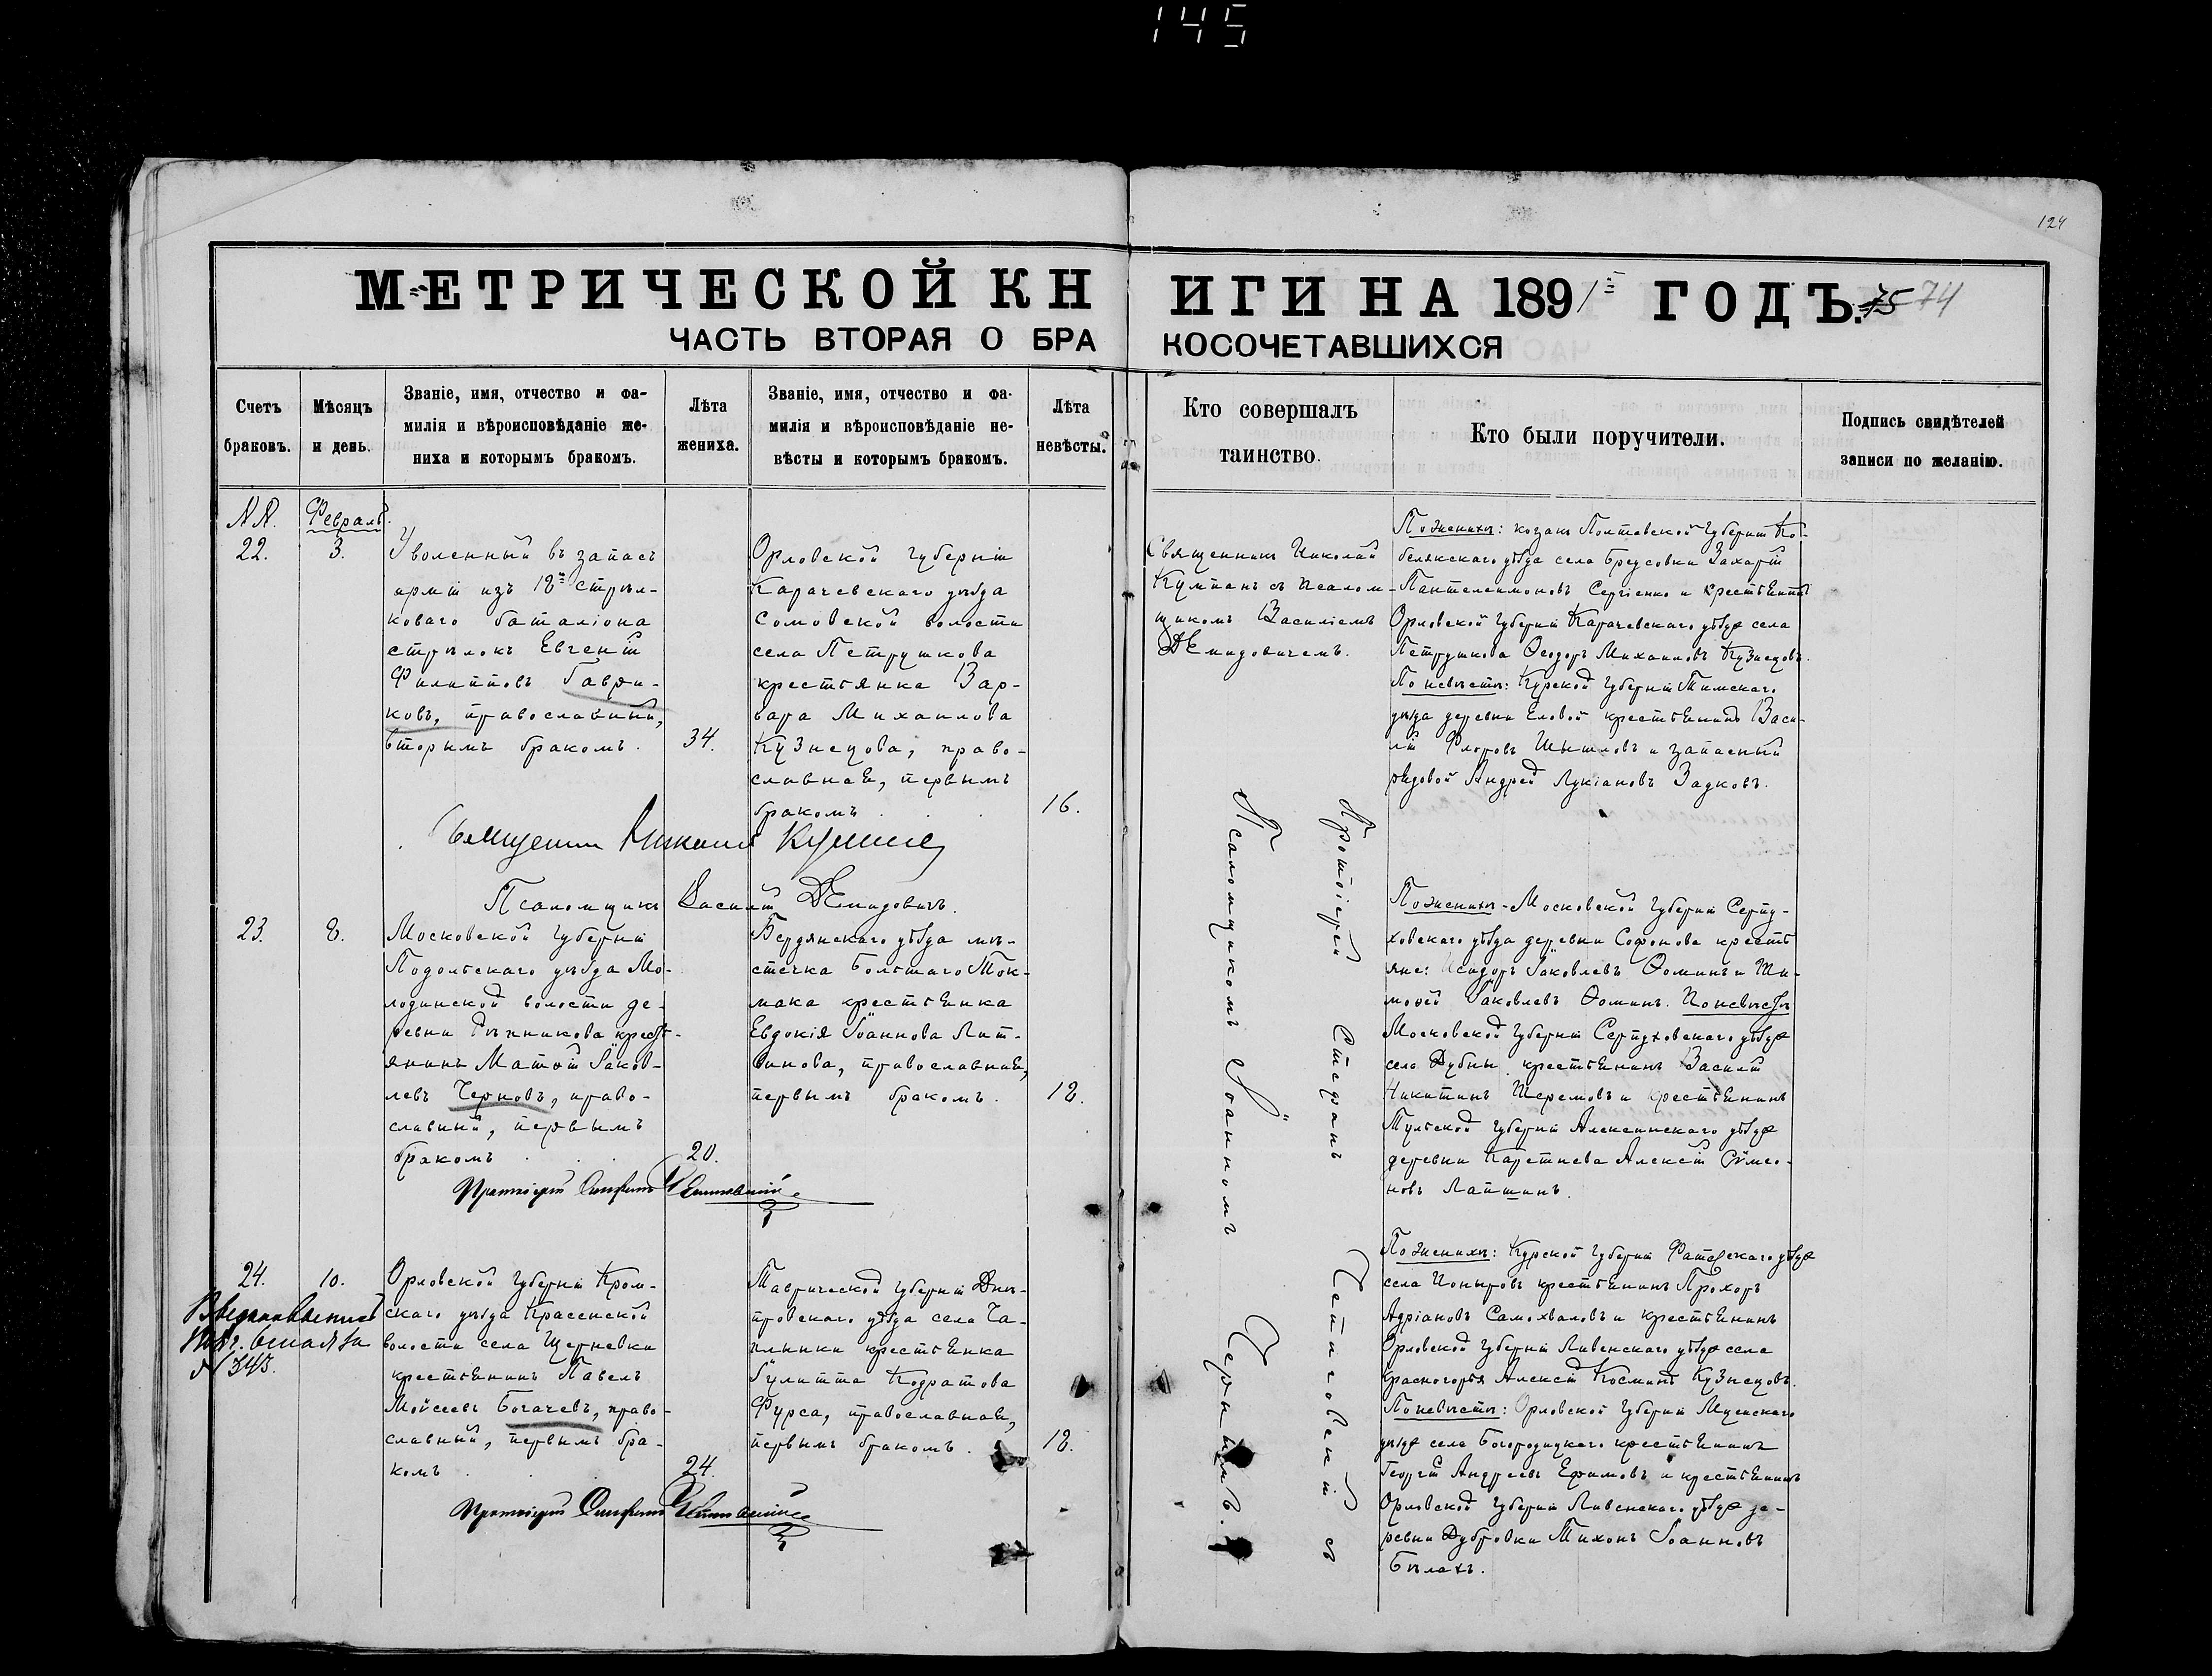 145
124
МЕТРИЧЕСКОЙ КНИГИ НА 1891й ГОДЪ. 75 74
ЧАСТЬ ВТОРАЯ О БРАКОСОЧЕТАВШИХСЯ
Счетъ браковъ.
Мѣсяцъ и день.
Званіе, имя, отчество и фа-
милія и вѣроисповѣданіе же-
ниха и которымъ бракомъ.
Лѣта жениха.
Званіе, имя, отчество и фа-
милія и вѣроисповѣданіе не-
вѣсты и которымъ бракомъ.
Лѣта невѣсты.
Кто совершалъ таинство.
Кто были поручители.
Подпись свидѣтелей
записи по желанію.
NN.
Февраль.
22.
3.
Уволенный въ запасъ
арміи изъ 18го стрѣл-
коваго баталіона
стрѣлокъ Евгеній
Филипповъ Гаври-
ковъ, православный,
вторымъ бракомъ.
34.
Орловской губерніи
Карачевскаго уѣзда
Сомовской волости
села Петрушкова
крестьянка Вар-
вара Михаилова
Кузнецова, право-
славная, первымъ
бракомъ
16.
Священникъ Николай
Купманъ съ псалом-
щикомъ Василіемъ
Демидовичемъ.
По женихѣ: козакъ Полтавской губерніи Ко-
белякскаго уѣзда села Бреусовки Захарій
Пантелеимоновъ Сергіенко и крестьянинъ
Орловской губерніи Карачевскаго уѣзда села
Петрушкова Ѳеодоръ Михаиловъ Кузнецовъ.
По невѣстѣ: Курской губерніи Тимскаго
уѣзда деревни Еловой крестьянинъ Васи-
лій Флоровъ Шышловъ и запасный
рядовой Андрей Лукіановъ Задковъ.
Священникъ Николай
Псаломщикъ Василій Демидовичъ.
23.
8.
Московской губерніи
Подольскаго уѣзда Мо-
лодинской волости де-
ревни крест-
янинъ Матѳій Іаков-
левъ Черновъ, право-
славный, первымъ
бракомъ
20.
Бердянскаго уѣзда мѣ-
стечка Большаго Ток-
мака крестьянка
Евдокія Іоаннова Лит-
винова, православная,
первымъ бракомъ.
18.
Протоіерей Стефанъ
съ
Псаломщикомъ Іоанномъ
По женихѣ - Московской губерніи Серпу-
ховскаго уѣзда деревни Софонова кресть
яне: Исидоръ Іаковлевъ Ѳоминъ и Ти-
моѳей Іаковлевъ Ѳоминъ. По невѣстѣ
Московской губерніи Серпуховскаго уѣзда
села Дубны крестьянинъ Василій
Никитинъ Шереметовъ и крестьянинъ
Тульской губерніи Алексинскаго уѣзда
деревни Каретнева Алексій Сѵмео-
новъ Лапшинъ.
Протоіерей Стефанъ
24.
10.
N 343.
Орловской губерніи Кром-
скаго уѣзда Красенской
волости села Щерневки
крестьянинъ Павелъ
Мойсеевъ Богачевъ, право-
славный, первымъ бра-
комъ
24.
Таврической губерніи Днѣ-
провскаго уѣзда села Ча-
плынки крестьянка
Іулитта Кодратова
Фурса, православная,
первымъ бракомъ.
18.
По женихѣ: Курской губерніи Фатежскаго уѣзда
села Поныровъ крестьянинъ Прохоръ
Адріановъ Самохваловъ и крестьянинъ
Орловской губерніи Ливенскаго уѣзда села
Красногорья Алексій Косминъ Кузнецовъ.
По невѣстѣ: Орловской губерніи Мценскаго
уѣзда села Богородицкаго крестьянинъ
Георгій Андреевъ Ефимовъ и крестьянинъ
Орловской губерніи Ливенскаго уѣзда де-
ревни Дубровки Тихонъ Іоанновъ
Бѣлахъ.
Протоіерей Стефанъ